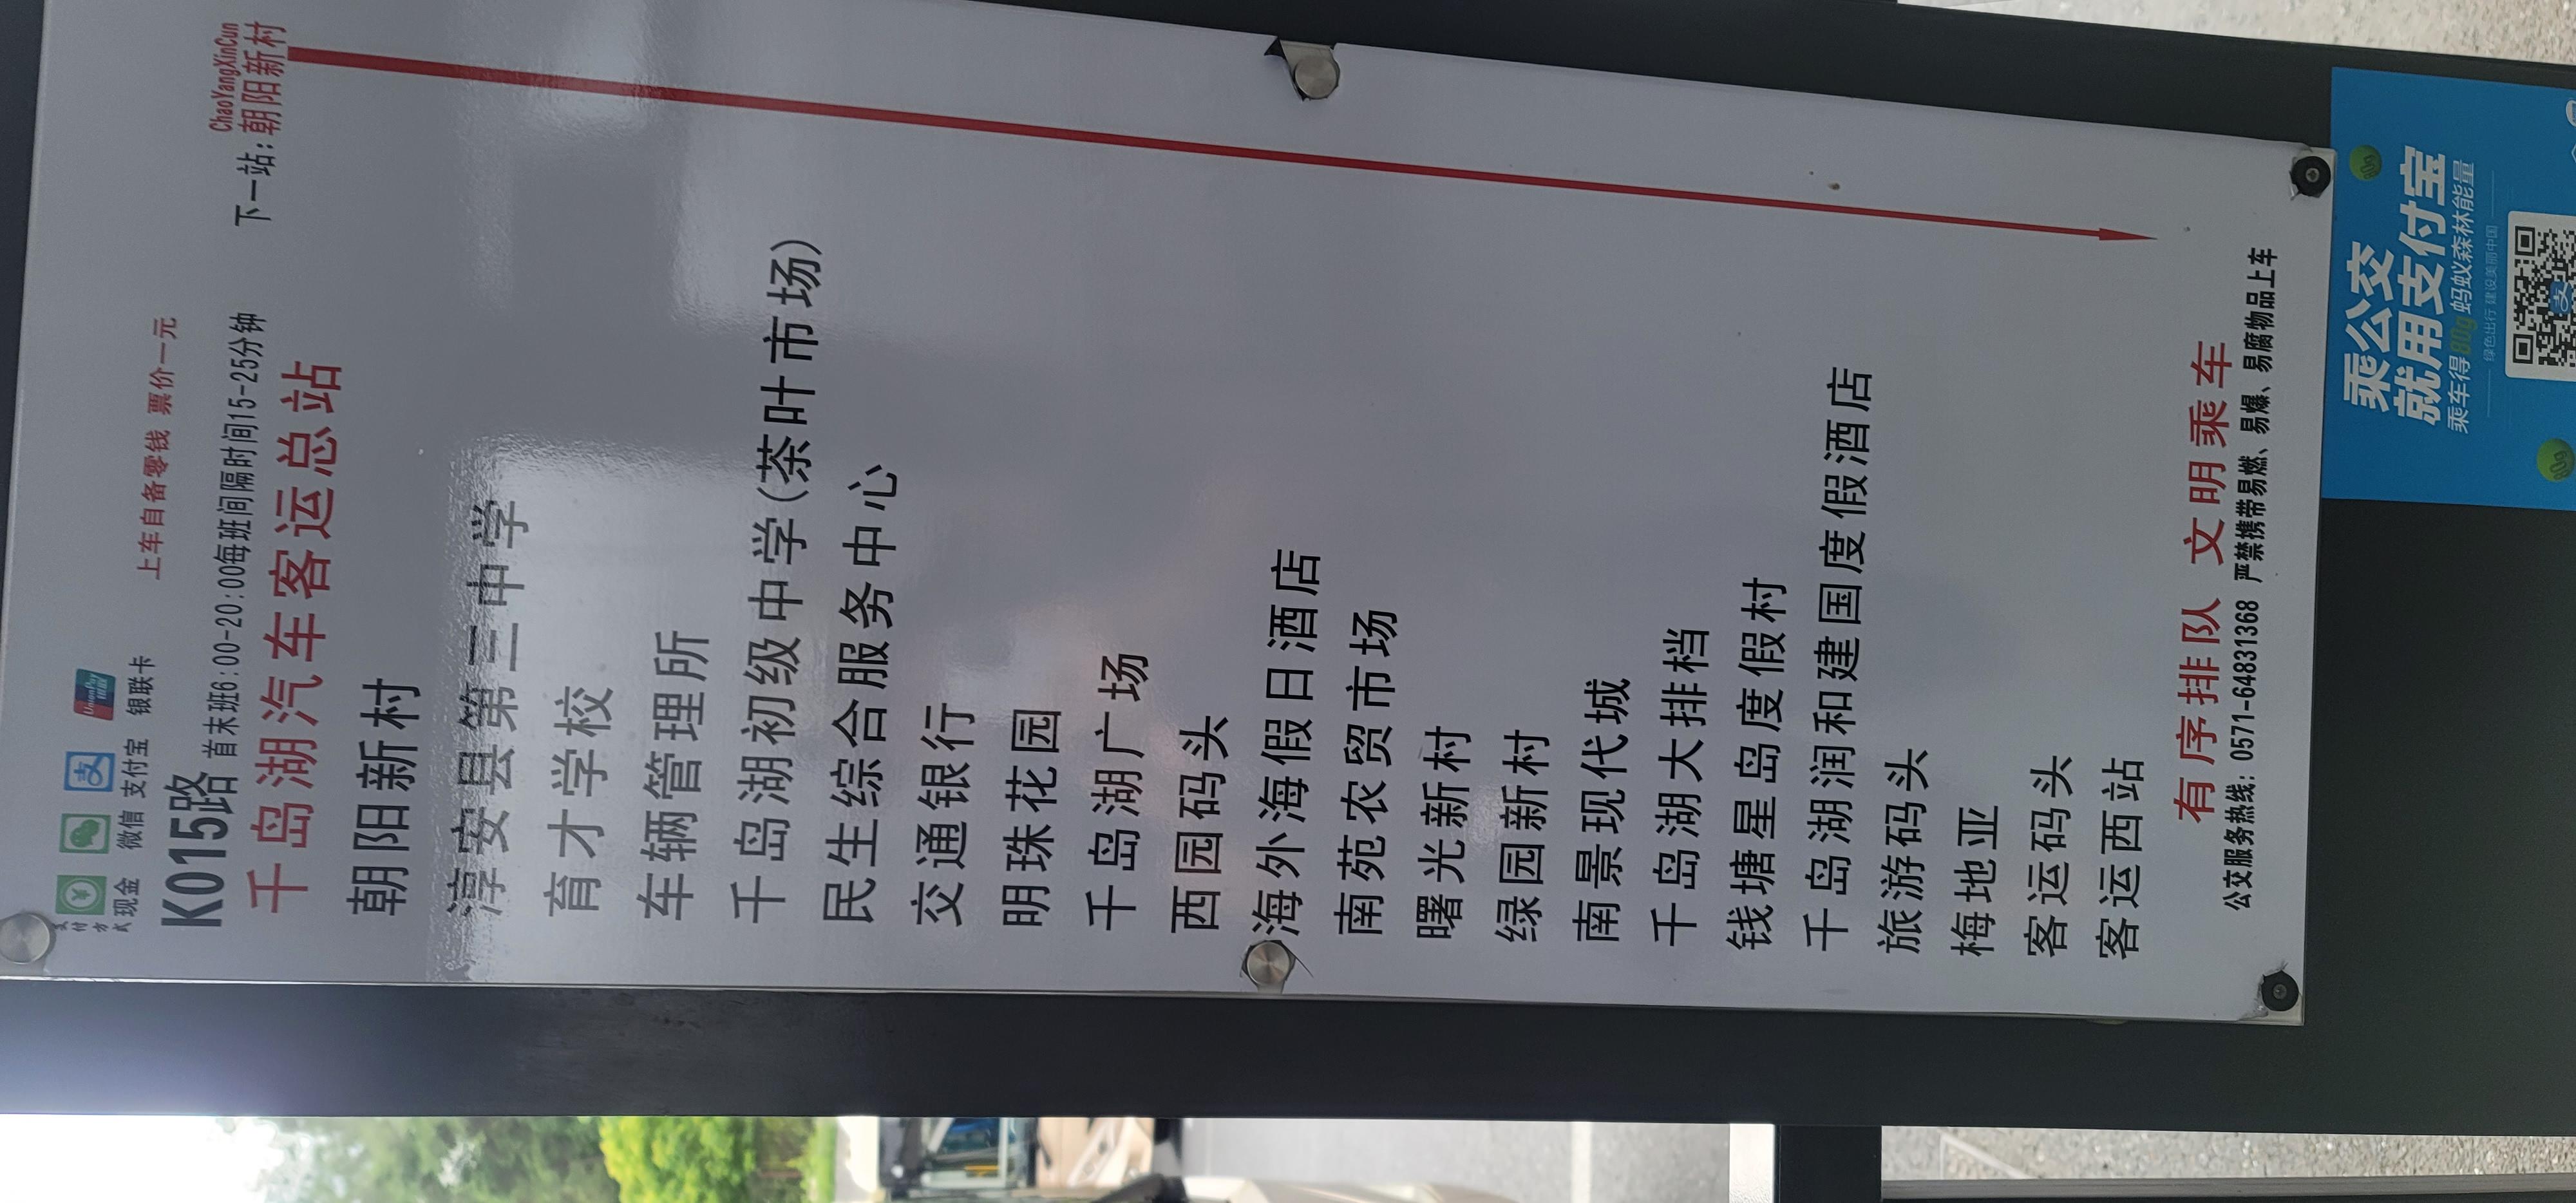 支付方式
现金 微信 支付宝 银联卡
UnionPay
上车自备零钱 票价一元
K015路 首末班6:00-20:00每班间隔时间15-25分钟
ChaoYangXinCun
下一站：朝阳新村
千岛湖汽车客运总站
朝阳新村
淳安县第三中学
育才学校
车辆管理所
千岛湖初级中学(茶叶市场)
民生综合服务中心
交通银行
明珠花园
千岛湖广场
西园码头
海外海假日酒店
南苑农贸市场
曙光新村
绿园新村
南景现代城
千岛湖大排档
钱塘星岛度假村
千岛湖润和建国度假酒店
旅游码头
梅地亚
客运码头
客运西站
有序排队 文明乘车
公交服务热线：0571-64831368 严禁携带易燃、易爆、易腐物品上车
乘公交
就用支付宝
乘车得80g蚂蚁森林能量
绿色出行 建设美丽中国
支